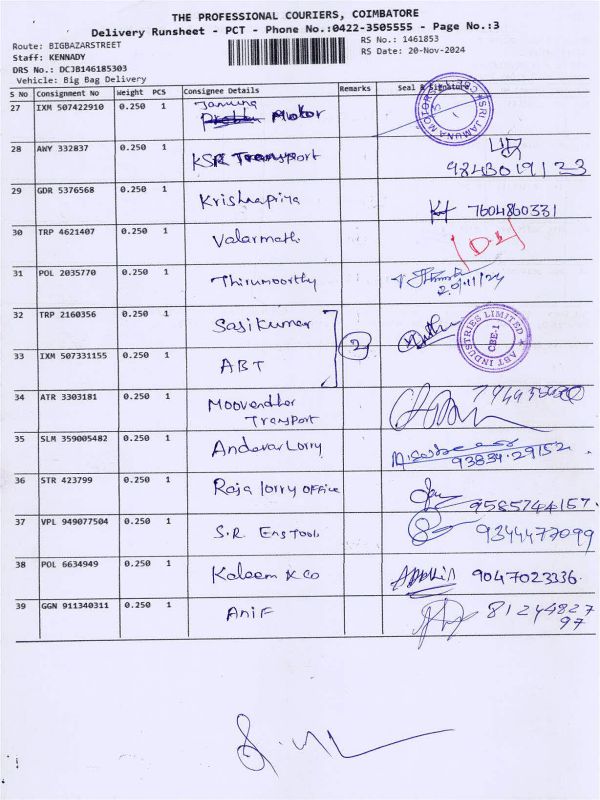 THE PROFESSIONAL COURIERS, COIMBATORE
Delivery Runsheet - PCT - Phone No.:0422-3505555 - Page No.:3
Route: BIGBAZARSTREET
RS No.: 1461853
Staff: KENNADY
RS Date: 20-Nov-2024
DRS No.: DCJB146185303
Vehicle: Big Bag Delivery
S No Consignment No Weight PCS Consignee Details Remarks Seal & Signature
27 IXM 507422910 0.250 1 Jamuna Motor
SRI JAMUNA MOTORS
28 AWY 332837 0.250 1 KSR Transport 9843019123
29 GDR 5376568 0.250 1 Krishnapriya 7604860331
30 TRP 4621407 0.250 1 Valarmathi
31 POL 2035770 0.250 1 Thirumoorthy 20/11/24
32 TRP 2160356 0.250 1 Sasikumar
2
ABT INDUSTRIES LIMITED CBE-1
33 IXM 507331155 0.250 1 ABT
34 ATR 3303181 0.250 1 Moovendhar
Transport
35 SLM 359005482 0.250 1 Andavar Lorry 93834-29152
36 STR 423799 0.250 1 Raja lorry office 9585744157
37 VPL 949077504 0.250 1 S.R. Enstool 9344477099
38 POL 6634949 0.250 1 Kaleem & Co 9047023336
39 GGN 911340311 0.250 1 Anif 81244827
97